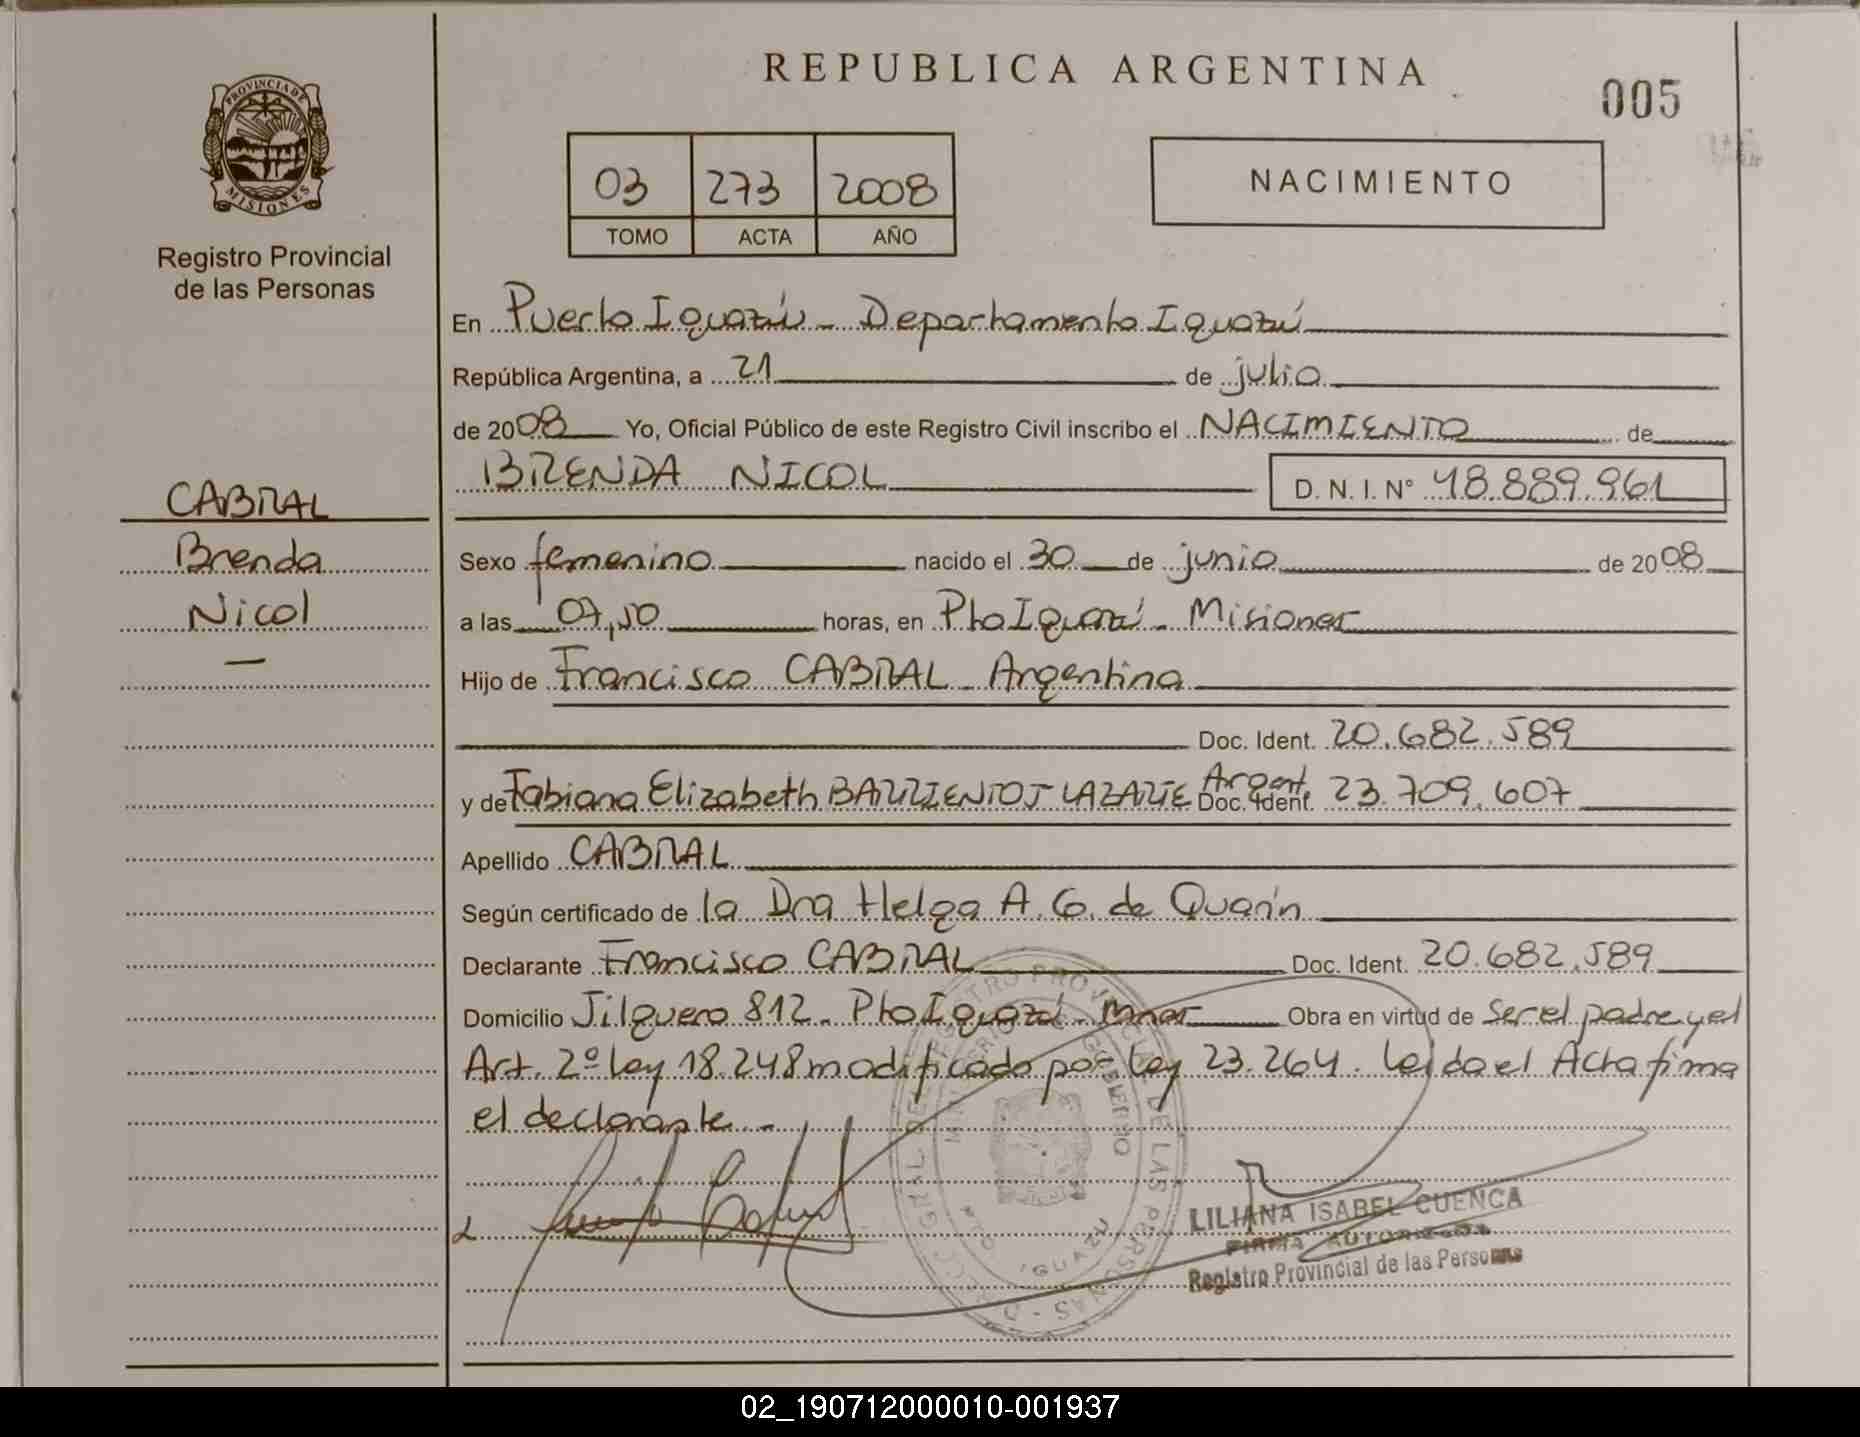 REPUBLICA ARGENTINA
005
PROVINCIA DE
MISIONES
Registro Provincial
de las Personas
03 273 2008
TOMO ACTA AÑO
NACIMIENTO
En Puerto Iguazú - Departamento Iguazú
República Argentina, a 21 de julio
de 2008 Yo, Oficial Público de este Registro Civil inscribo el NACIMIENTO de
BRENDA NICOL D. N. I. N° 48.889.961
CABRAL
Brenda
Nicol
Sexo femenino nacido el 30 de junio de 2008
a las 07,50 horas, en Pto Iguazú - Misiones
Hijo de Francisco CABRAL Argentina
Doc. Ident. 20.682.589
y de Fabiana Elizabeth BARRIENTOS LAZARTE Argent. Doc. Ident. 23.709.607
Apellido CABRAL
Según certificado de la Dra Helga A. G. de Quarín
Declarante Francisco CABRAL Doc. Ident. 20.682.589
Domicilio Jilguero 812 - Pto Iguazú - Mnes Obra en virtud de ser el padre y el
Art. 2º Ley 18.248 modificado por Ley 23.264. Leída el Acta firma
el declarante -
LILIANA ISABEL CUENCA
FIRMA AUTORIZADA
Registro Provincial de las Personas
02_190712000010-001937